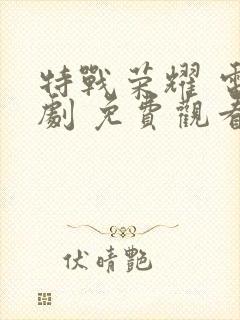 特戰荣耀 電
劇 免費觀看
伏晴艷